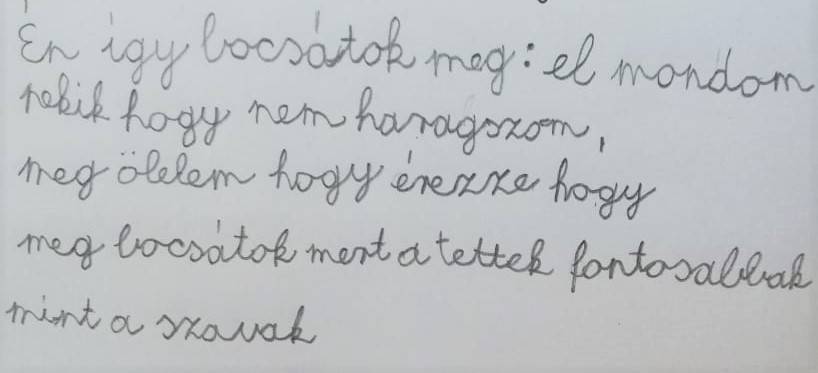 Én így bocsátok meg: el mondom
nekik hogy nem haragszom,
meg ölelem hogy érezze hogy
meg bocsátok mert a tettek fontosabbak
mint a szavak